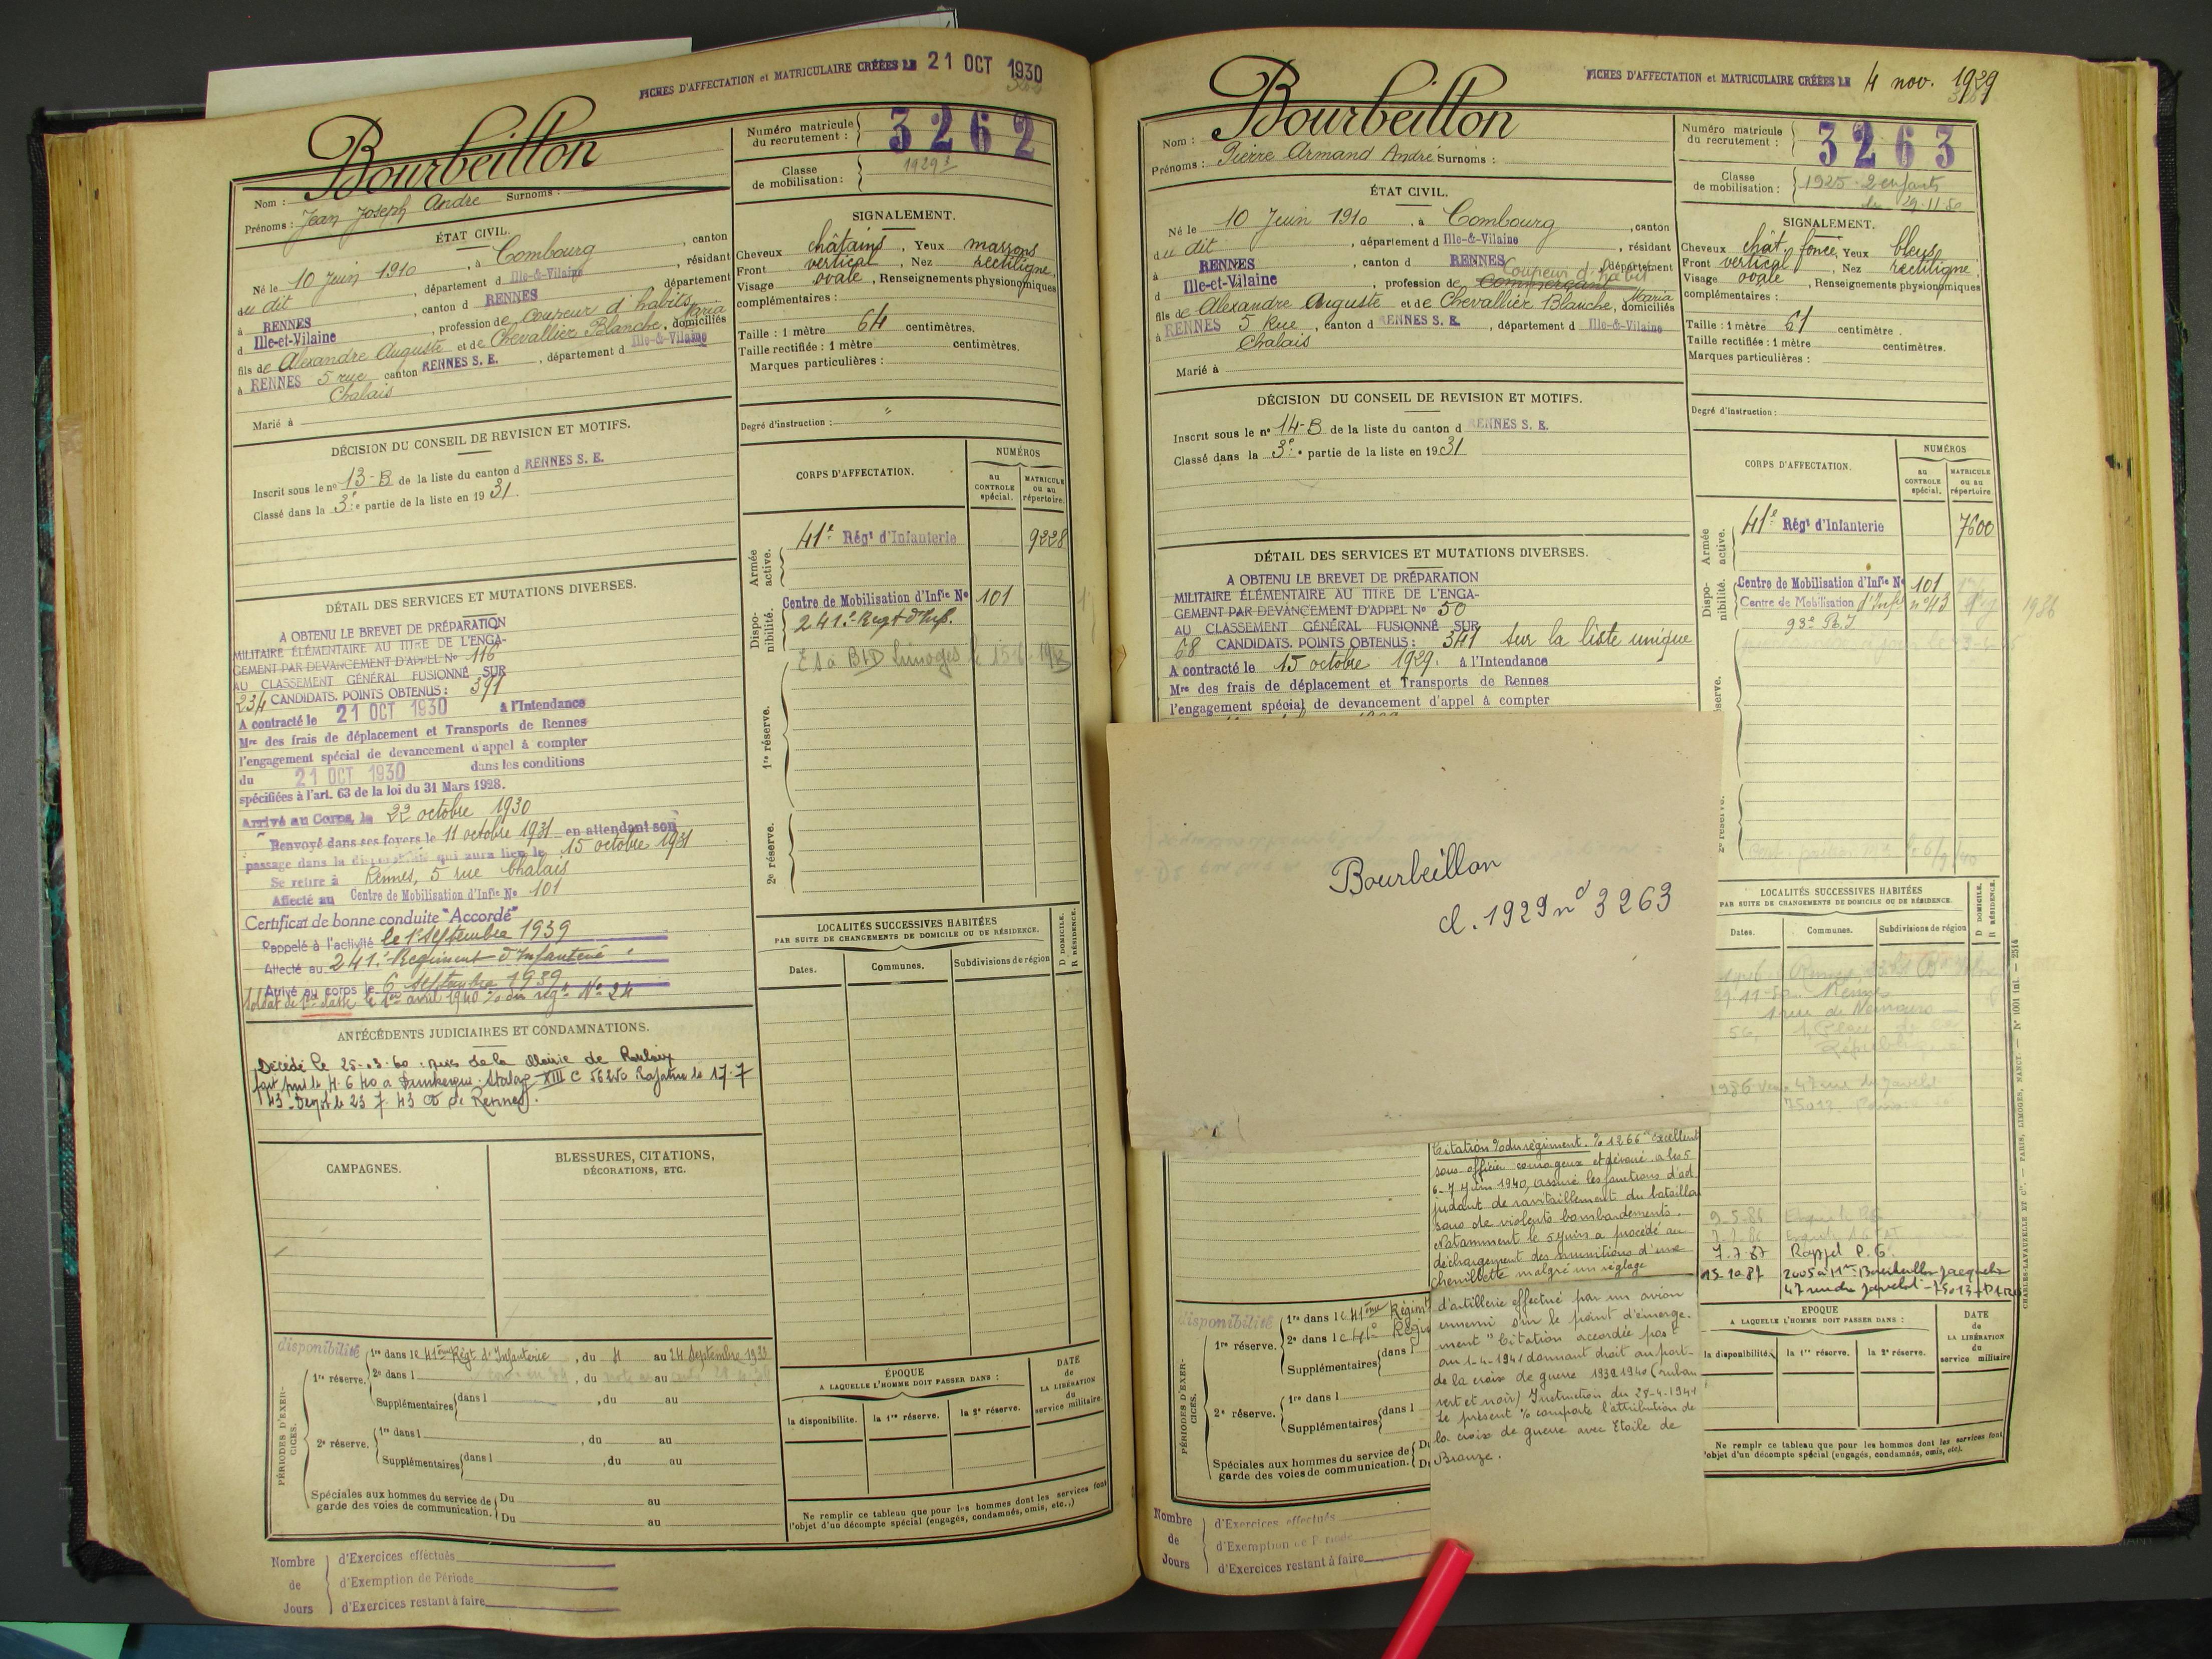 FICHES D'AFFECTATION et MATRICULAIRE CRÉÉES LE 21 OCT 1930
Bourbeillon
Nom :
Prénoms : Jean Joseph André Surnoms :
Numéro matricule du recrutement : 3262
Classe de mobilisation : 1929
ÉTAT CIVIL.
Né le 10 Juin 1910, à Combourg, canton
du dit, département d Ille-&-Vilaine, résidant
à RENNES, canton d RENNES, département
d Ille-et-Vilaine, profession de coupeur d'habits
fils de Alexandre Auguste et de Chevallier Blanche, Maria domiciliés
à RENNES 5 rue canton RENNES S. E., département d Ille-&-Vilaine
Chalais
Marié à
SIGNALEMENT.
Cheveux châtains, Yeux marrons
Front vertical, Nez rectiligne,
Visage ovale, Renseignements physionomiques
complémentaires :
Taille : 1 mètre 64 centimètres.
Taille rectifiée : 1 mètre centimètres.
Marques particulières :
Degré d'instruction : "
DÉCISION DU CONSEIL DE REVISION ET MOTIFS.
Inscrit sous le nº 13-B de la liste du canton d RENNES S. E.
Classé dans la 3e partie de la liste en 1931.
DÉTAIL DES SERVICES ET MUTATIONS DIVERSES.
A OBTENU LE BREVET DE PRÉPARATION
MILITAIRE ÉLÉMENTAIRE AU TITRE DE L'ENGA-
GEMENT PAR DEVANCEMENT D'APPEL No 116
AU CLASSEMENT GÉNÉRAL FUSIONNÉ SUR
234 CANDIDATS. POINTS OBTENUS : 391
A contracté le 21 OCT 1930 à l'Intendance
Mre des frais de déplacement et Transports de Rennes
l'engagement spécial de devancement d'appel à compter
du 21 OCT 1930 dans les conditions
spécifiées à l'art. 63 de la loi du 31 Mars 1928.
Arrivé au Corps, le 22 octobre 1930
Renvoyé dans ses foyers le 11 octobre 1931 en attendant son
passage dans la disponibilité qui aura lieu le 15 octobre 1931
Se retire à Rennes, 5 rue Chalais
Affecté au Centre de Mobilisation d'Infie No 101
Certificat de bonne conduite "Accordé"
Rappelé à l'activité le 1er Septembre 1939
Affecté au 241e Régiment d'Infanterie
Arrivé au corps le 6 Septembre 1939
Soldat de 1re classe le 1er avril 1940 % du régt No 24
ANTÉCÉDENTS JUDICIAIRES ET CONDAMNATIONS.
Décédé le 25-3-60 de la Mairie de
fait pris le 4.6.40 a Dunkerque. Stalag XIII C 56250 Rapatrié le 17-7
43 - le 23 7 43 de Rennes.
CAMPAGNES.
BLESSURES, CITATIONS,
DÉCORATIONS, ETC.
CORPS D'AFFECTATION.
NUMÉROS
au CONTROLE spécial.
MATRICULE ou au répertoire.
Armée active.
41e Régt d'Infanterie 9228
Disponibilité.
Centre de Mobilisation d'Infie No 101
241e Regt d'Inf.
Limoges
1re réserve.
2e réserve.
LOCALITÉS SUCCESSIVES HABITÉES
PAR SUITE DE CHANGEMENTS DE DOMICILE OU DE RÉSIDENCE.
D DOMICILE. R RÉSIDENCE.
Dates. Communes. Subdivisions de région
PÉRIODES D'EXERCICES.
disponibilité
1re réserve. 1re dans le 41ème Régt d'Infanterie, du 4 au 24 Septembre 1933
2e dans l , du au
Supplémentaires dans l , du au
2e réserve. 1re dans l , du au
Supplémentaires dans l , du au
Spéciales aux hommes du service de garde des voies de communication. Du au
Du au
ÉPOQUE
A LAQUELLE L'HOMME DOIT PASSER DANS :
la disponibilité. la 1re réserve. la 2e réserve.
DATE de LA LIBÉRATION du service militaire.
Ne remplir ce tableau que pour les hommes dont les services font
l'objet d'un décompte spécial (engagés, condamnés, omis, etc.,)
Nombre de Jours
d'Exercices effectués
d'Exemption de Période
d'Exercices restant à faire
FICHES D'AFFECTATION et MATRICULAIRE CRÉÉES LE 4 nov. 1929
Bourbeillon
Nom :
Prénoms : Pierre Armand André Surnoms :
Numéro matricule du recrutement : 3263
Classe de mobilisation : 1925 - 2 enfants
29-11-50
ÉTAT CIVIL.
Né le 10 Juin 1910, à Combourg, canton
du dit, département d Ille-&-Vilaine, résidant
à RENNES, canton d RENNES, département
Coupeur d'habit
d Ille-et-Vilaine, profession de Commerçant
fils de Alexandre Auguste et de Chevallier Blanche, Maria domiciliés
à RENNES 5 Rue, canton d RENNES S. E., département d Ille-&-Vilaine
Chalais
Marié à
SIGNALEMENT.
Cheveux chât. foncé, Yeux bleus
Front vertical, Nez rectiligne,
Visage ovale, Renseignements physionomiques
complémentaires :
Taille : 1 mètre 61 centimètre.
Taille rectifiée : 1 mètre centimètres.
Marques particulières :
Degré d'instruction :
DÉCISION DU CONSEIL DE REVISION ET MOTIFS.
Inscrit sous le nº 14-B de la liste du canton d RENNES S. E.
Classé dans la 3e partie de la liste en 1931
DÉTAIL DES SERVICES ET MUTATIONS DIVERSES.
A OBTENU LE BREVET DE PRÉPARATION
MILITAIRE ÉLÉMENTAIRE AU TITRE DE L'ENGA-
GEMENT PAR DEVANCEMENT D'APPEL No 50
AU CLASSEMENT GÉNÉRAL FUSIONNÉ SUR
68 CANDIDATS. POINTS OBTENUS : 341 sur la liste unique
A contracté le 15 octobre 1929. à l'Intendance
Mre des frais de déplacement et Transports de Rennes
l'engagement spécial de devancement d'appel à compter
Bourbeillon
cl. 1929 nº 3263
CORPS D'AFFECTATION.
NUMÉROS
au CONTROLE spécial.
MATRICULE ou au répertoire
Armée active.
41e Régt d'Infanterie 7600
Disponibilité.
Centre de Mobilisation d'Infie No 101
Centre de Mobilisation d'Infie nº 43
1986
93e R.I
LOCALITÉS SUCCESSIVES HABITÉES
PAR SUITE DE CHANGEMENTS DE DOMICILE OU DE RÉSIDENCE.
D DOMICILE. R RÉSIDENCE.
Dates. Communes. Subdivisions de région
29-11-50 Rennes
1 rue de Nemours
56, Place de la
République
1986 47 rue du Javelot
75013 Paris
9-5-86
7.7.87 Rappel P.G.
15-10-87 2005 à Mme Bourbeillon Jacqueline
47 rue du Javelot - 75013 PARIS
Citation % du régiment. % 1266 "Excellent
sous officier courageux et dévoué. a les 5
6-7 juin 1940, assuré les fonctions d'ad
judant de ravitaillement du bataillon
sous de violents bombardements.
Notamment le 5 juin a procédé au
déchargement des munitions d'une
chenillette malgré un réglage
d'artillerie effectué par un avion
ennemi sur le point d'émerge-
ment" Citation accordée post
au 1-4-1941 donnant droit au port
de la croix de guerre 1939-1940 (ruban
vert et noir) Instruction du 28-4-1941
Le présent % comporte l'attribution de
la croix de guerre avec Etoile de
Bronze.
PÉRIODES D'EXERCICES.
disponibilité
1re réserve. 1re dans le 41ème Régim
2e dans le 41e Régi
Supplémentaires dans l
2e réserve. 1re dans l
Supplémentaires dans l
Spéciales aux hommes du service de garde des voies de communication.
EPOQUE
A LAQUELLE L'HOMME DOIT PASSER DANS :
la disponibilité. la 1re réserve. la 2e réserve.
DATE de LA LIBÉRATION du service militaire
Ne remplir ce tableau que pour les hommes dont les services font
l'objet d'un décompte spécial (engagés, condamnés, omis, etc).
Nombre de Jours
d'Exercices effectués
d'Exemption de Période
d'Exercices restant à faire
CHARLES-LAVAUZELLE ET Cie. — PARIS, LIMOGES, NANCY. — Nº 1001 — 2514